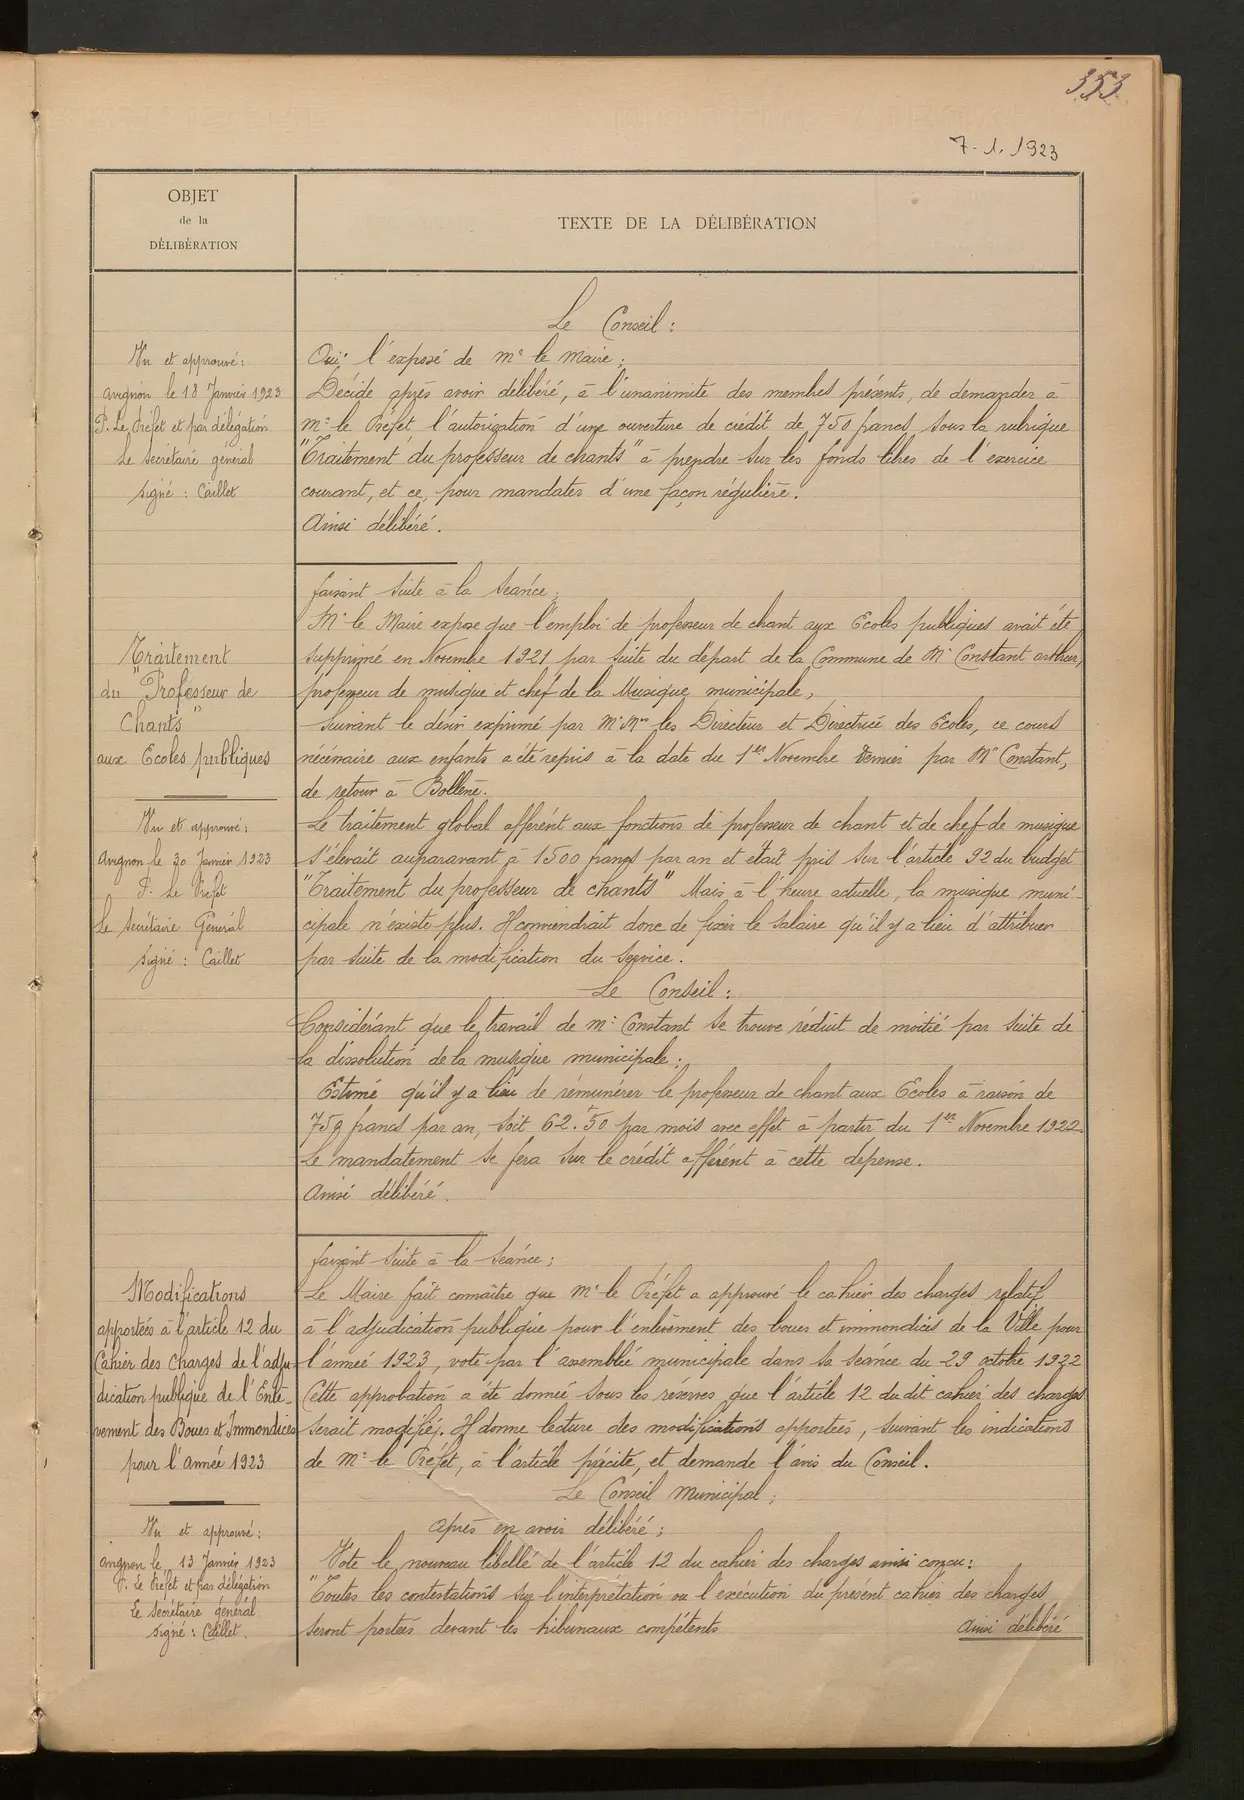 353
7.1.1923
OBJET
de la
DÉLIBÉRATION
TEXTE DE LA DÉLIBÉRATION
Le Conseil :
Vu et approuvé :
Avignon le 18 Janvier 1923
P. Le Préfet et par délégation
Le Secrétaire général
signé : Caillet
Oui l'exposé de Mr le Maire ;
Décide après avoir délibéré, à l'unanimité des membres présents, de demander à
Mr le Préfet, l'autorisation d'une ouverture de crédit de 750 francs sous la rubrique
"Traitement du professeur de chants" à prendre sur les fonds libres de l'exercice
courant, et ce, pour mandater d'une façon régulière.
Ainsi délibéré.
Traitement
du "Professeur de
Chants"
aux Ecoles publiques
Vu et approuvé :
Avignon le 30 Janvier 1923
P. Le Préfet
Le Secrétaire Général
signé : Caillet
faisant suite à la séance ;
Mr le Maire expose que l'emploi de professeur de chant aux Ecoles publiques avait été
supprimé en Novembre 1921 par suite du départ de la Commune de Mr Constant arthur,
professeur de musique et chef de la Musique municipale,
Suivant le désir exprimé par Mr Mme les Directeur et Directrice des Ecoles, ce cours
nécéssaire aux enfants a été repris à la date du 1er Novembre dernier par Mr Constant,
de retour à Bollène.
Le traitement global afférent aux fonctions de professeur de chant et de chef de musique
s'élevait auparavant à 1500 francs par an et était pris sur l'article 92 du budget
"Traitement du professeur de chants" Mais à l'heure actuelle, la musique muni-
cipale n'existe plus. Il conviendrait donc de fixer le salaire qu'il y a lieu d'attribuer
par suite de la modification du service.
Le Conseil :
Considérant que le travail de Mr Constant se trouve réduit de moitié par suite de
la dissolution de la musique municipale ;
Estime qu'il y a lieu de rémunérer le professeur de chant aux Ecoles à raison de
750 francs par an, soit 62f.50 par mois avec effet à partir du 1er Novembre 1922.
Le mandatement se fera sur le crédit afférent à cette dépense.
Ainsi délibéré.
Modifications
apportées à l'article 12 du
Cahier des charges de l'adju-
dication publique de l'Enle-
vement des Boues et Immondices
pour l'année 1923
Vu et approuvé :
Avignon le 13 Janvier 1923
P. Le Préfet et par délégation
Le Secrétaire général
signé : Caillet.
faisant suite à la séance ;
Le Maire fait connaître que Mr le Préfet a approuvé le cahier des charges relatif
à l'adjudication publique pour l'enlèvement des boues et immondices de la Ville pour
l'année 1923, voté par l'assemblée municipale dans sa séance du 29 octobre 1922
Cette approbation a été donnée sous les réserves que l'article 12 du dit cahier des charges
serait modifié. Il donne lecture des modifications apportées, suivant les indications
de Mr le Préfet, à l'article précité, et demande l'avis du Conseil.
Le Conseil Municipal ;
après en avoir délibéré ;
Vote le nouveau libellé de l'article 12 du cahier des charges ainsi conçu :
"Toutes les contestations sur l'interprétation ou l'exécution du présent cahier des charges
seront portées devant les tribunaux compétents
Ainsi délibéré